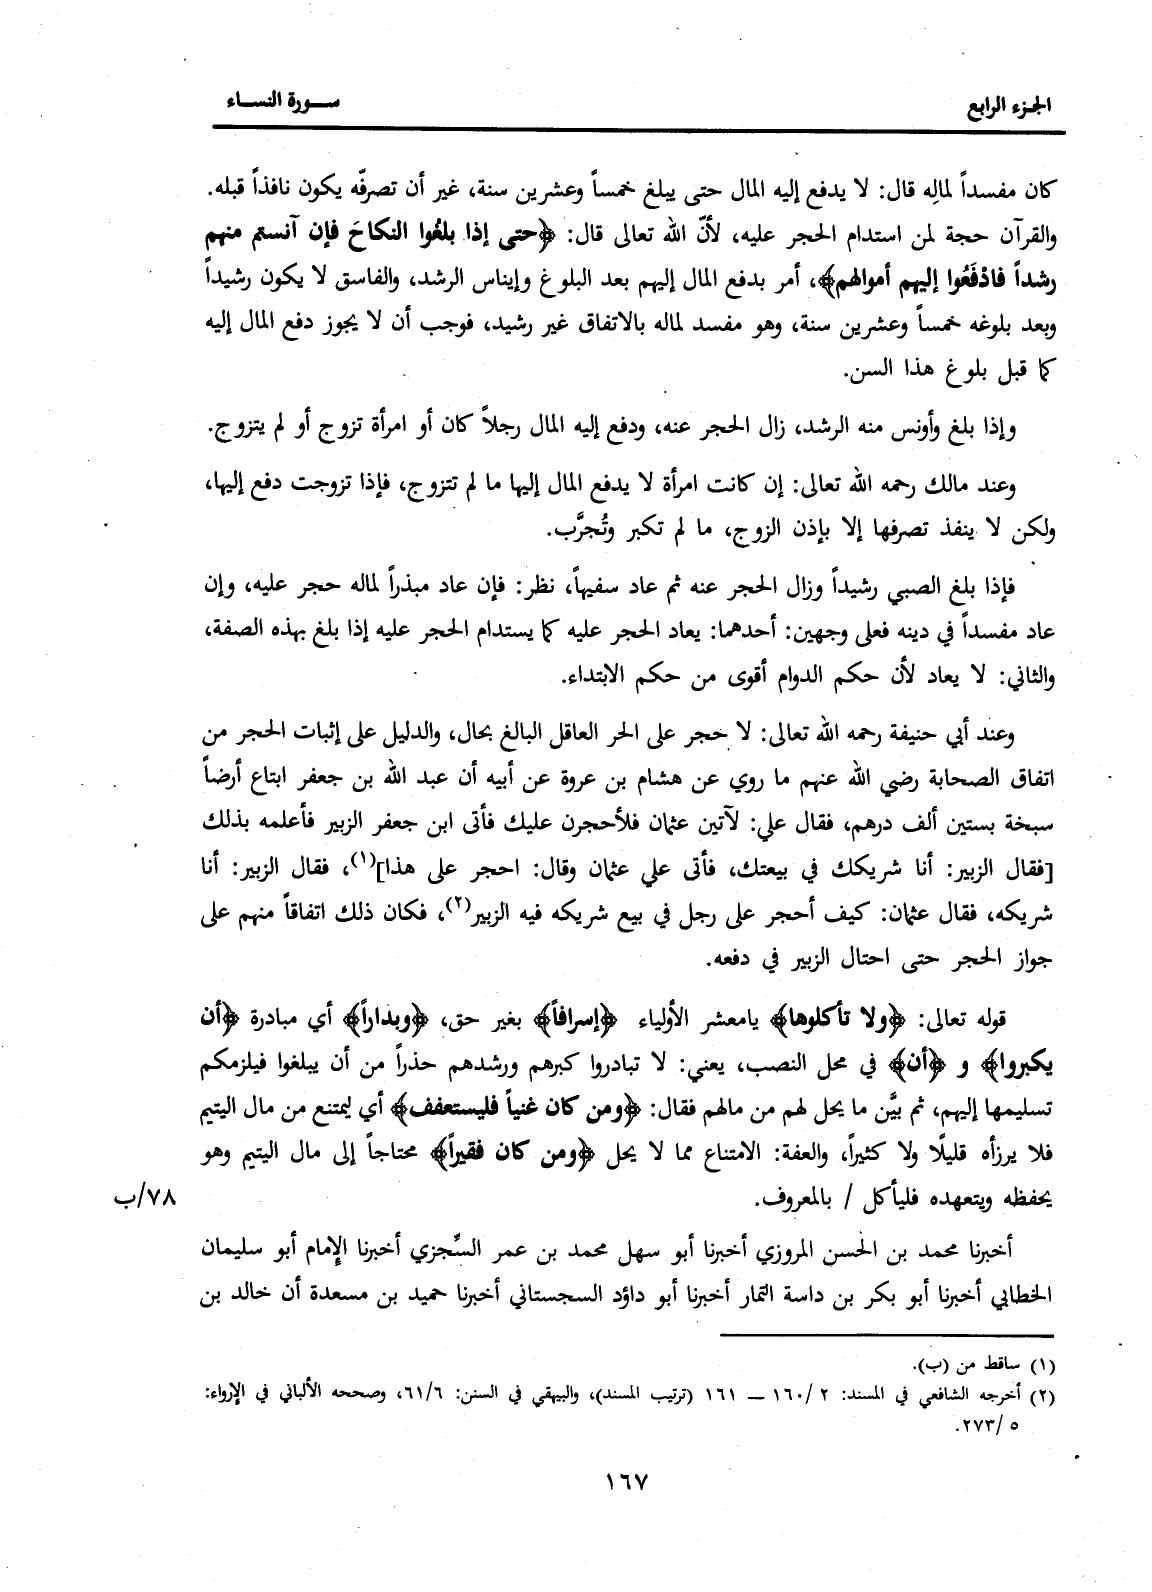 الجزء الرابع
سورة النساء
كان مفسداً لمالِه قال: لا يدفع إليه المال حتى يبلغ خمساً وعشرين سنة، غير أن تصرفّه يكون نافذاً قبله.
والقرآن حجة لمن استدام الحجر عليه، لأنّ الله تعالى قال: ﴿حتى إذا بلغُوا النكاحَ فإن آنستم منهم
رشداً فادْفَعُوا إليهم أموالهم﴾، أمر بدفع المال إليهم بعد البلوغ وإيناس الرشد، والفاسق لا يكون رشيداً
وبعد بلوغه خمساً وعشرين سنة، وهو مفسد لماله بالاتفاق غير رشيد، فوجب أن لا يجوز دفع المال إليه
كما قبل بلوغ هذا السن.
وإذا بلغ وأونس منه الرشد، زال الحجر عنه، ودفع إليه المال رجلاً كان أو امرأة تزوج أو لم يتزوج.
وعند مالك رحمه الله تعالى: إن كانت امرأة لا يدفع المال إليها ما لم تتزوج، فإذا تزوجت دفع إليها،
ولكن لا ينفذ تصرفها إلا بإذن الزوج، ما لم تكبر وتُجرَّب.
فإذا بلغ الصبي رشيداً وزال الحجر عنه ثم عاد سفيهاً، نظر: فإن عاد مبذراً لماله حجر عليه، وإن
عاد مفسداً في دينه فعلى وجهين: أحدهما: يعاد الحجر عليه كما يستدام الحجر عليه إذا بلغ بهذه الصفة،
والثاني: لا يعاد لأن حكم الدوام أقوى من حكم الابتداء.
وعند أبي حنيفة رحمه الله تعالى: لا حجر على الحر العاقل البالغ بحال، والدليل على إثبات الحجر من
اتفاق الصحابة رضي الله عنهم ما روي عن هشام بن عروة عن أبيه أن عبد الله بن جعفر ابتاع أرضاً
سبخة بستين ألف درهم، فقال علي: لآتين عثمان فلأحجرن عليك فأتى ابن جعفر الزبير فأعلمه بذلك
[فقال الزبير: أنا شريكك في بيعتك، فأتى علي عثمان وقال: احجر على هذا](١)، فقال الزبير: أنا
شريكه، فقال عثمان: كيف أحجر على رجل في بيع شريكه فيه الزبير(٢)، فكان ذلك اتفاقاً منهم على
جواز الحجر حتى احتال الزبير في دفعه.
قوله تعالى: ﴿ولا تأكلوها﴾ يامعشر الأولياء ﴿إسرافاً﴾ بغير حق، ﴿وبداراً﴾ أي مبادرة ﴿أن
يكبروا﴾ و ﴿أن﴾ في محل النصب، يعني: لا تبادروا كبرهم ورشدهم حذراً من أن يبلغوا فيلزمكم
تسليمها إليهم، ثم بيَّن ما يحل لهم من مالهم فقال: ﴿ومن كان غنياً فليستعفف﴾ أي ليمتنع من مال اليتيم
فلا يرزأه قليلًا ولا كثيراً، والعفة: الامتناع مما لا يحل ﴿ومن كان فقيراً﴾ محتاجاً إلى مال اليتيم وهو
يحفظه ويتعهده فليأكل / بالمعروف.
٧٨/ب
أخبرنا محمد بن الحسن المروزي أخبرنا أبو سهل محمد بن عمر السِّجزي أخبرنا الإمام أبو سليمان
الخطابي أخبرنا أبو بكر بن داسة التمار أخبرنا أبو داؤد السجستاني أخبرنا حميد بن مسعدة أن خالد بن
(١) ساقط من (ب).
(٢) أخرجه الشافعي في المسند: ٢ /١٦٠ ــ ١٦١ (ترتيب المسند)، والبيهقي في السنن: ٦١/٦، وصححه الألباني في الإرواء:
٥ /٢٧٣.
١٦٧